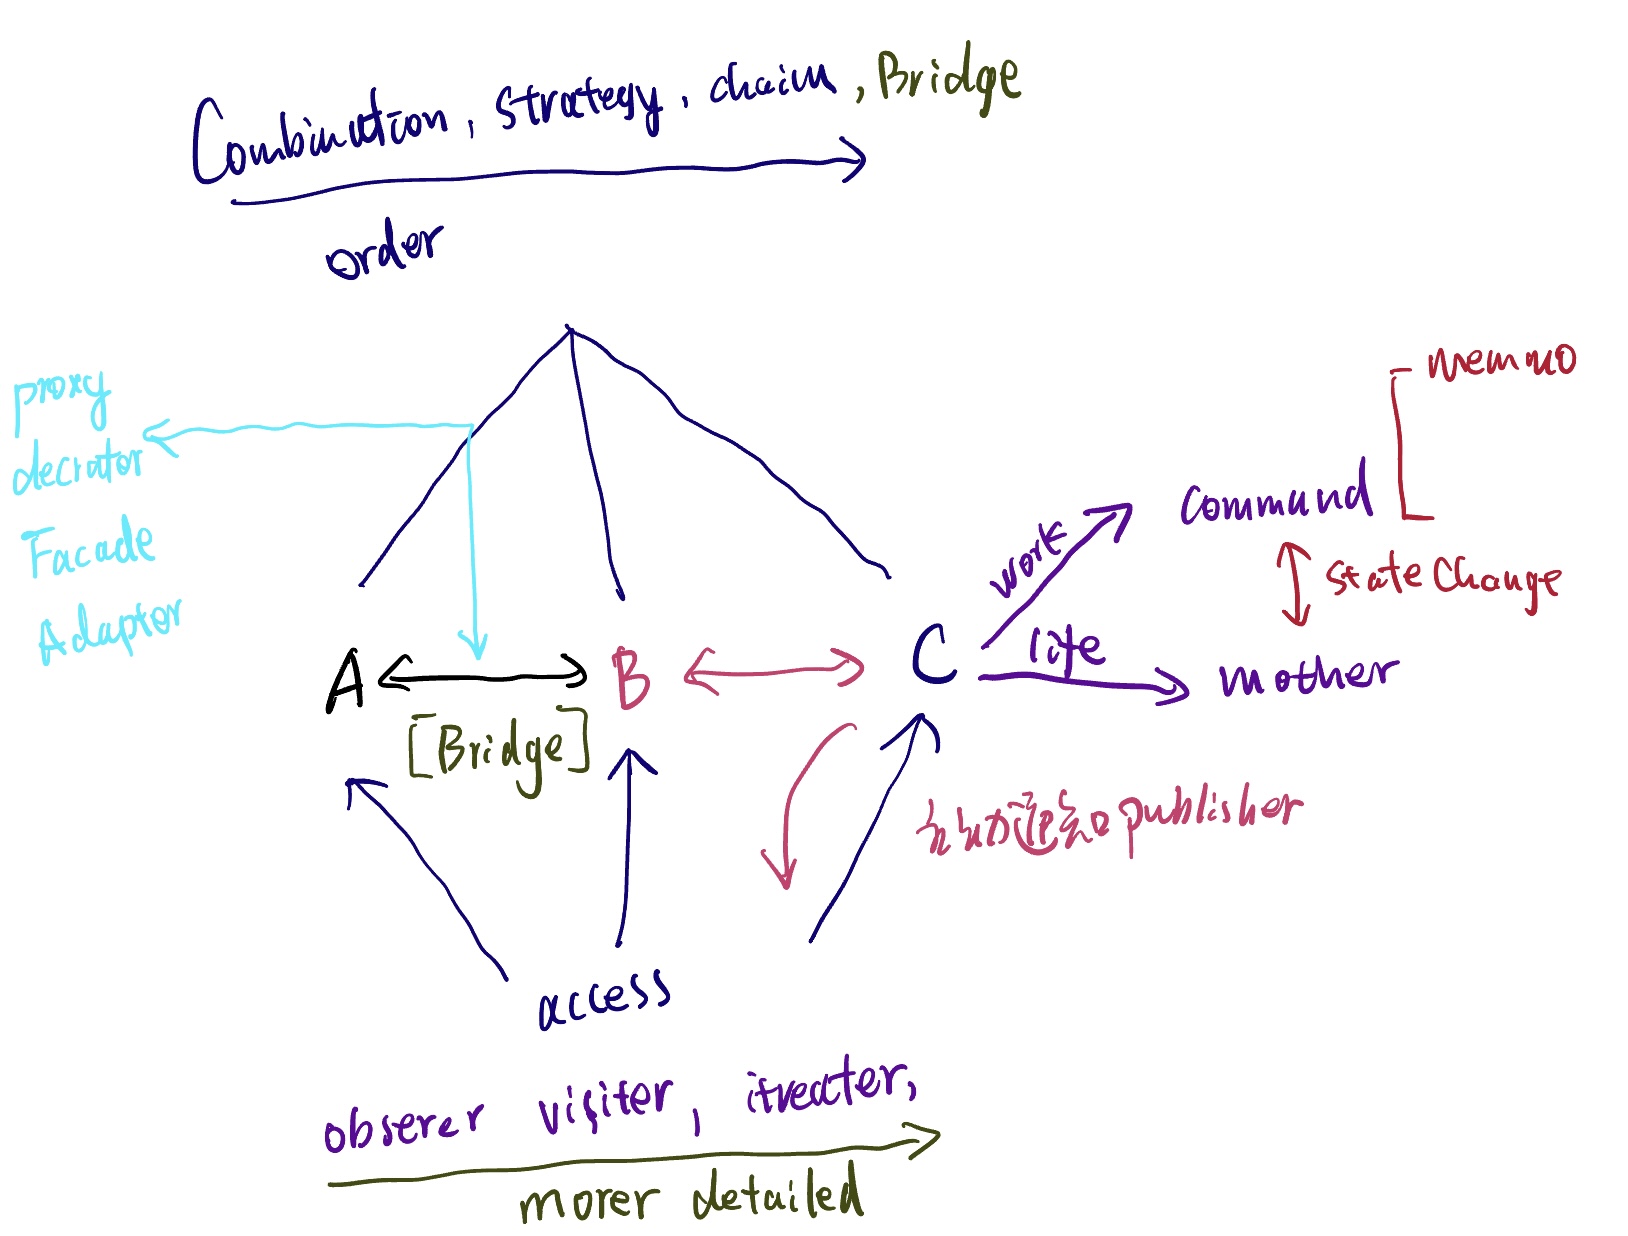 Combination, strategy, chain, Bridge
order
proxy
decrator
Facade
Adaptor
memno
command
stateChange
work
life
mother
A
B
C
[Bridge]
publisher
access
obserer visiter, itreater,
morer detailed